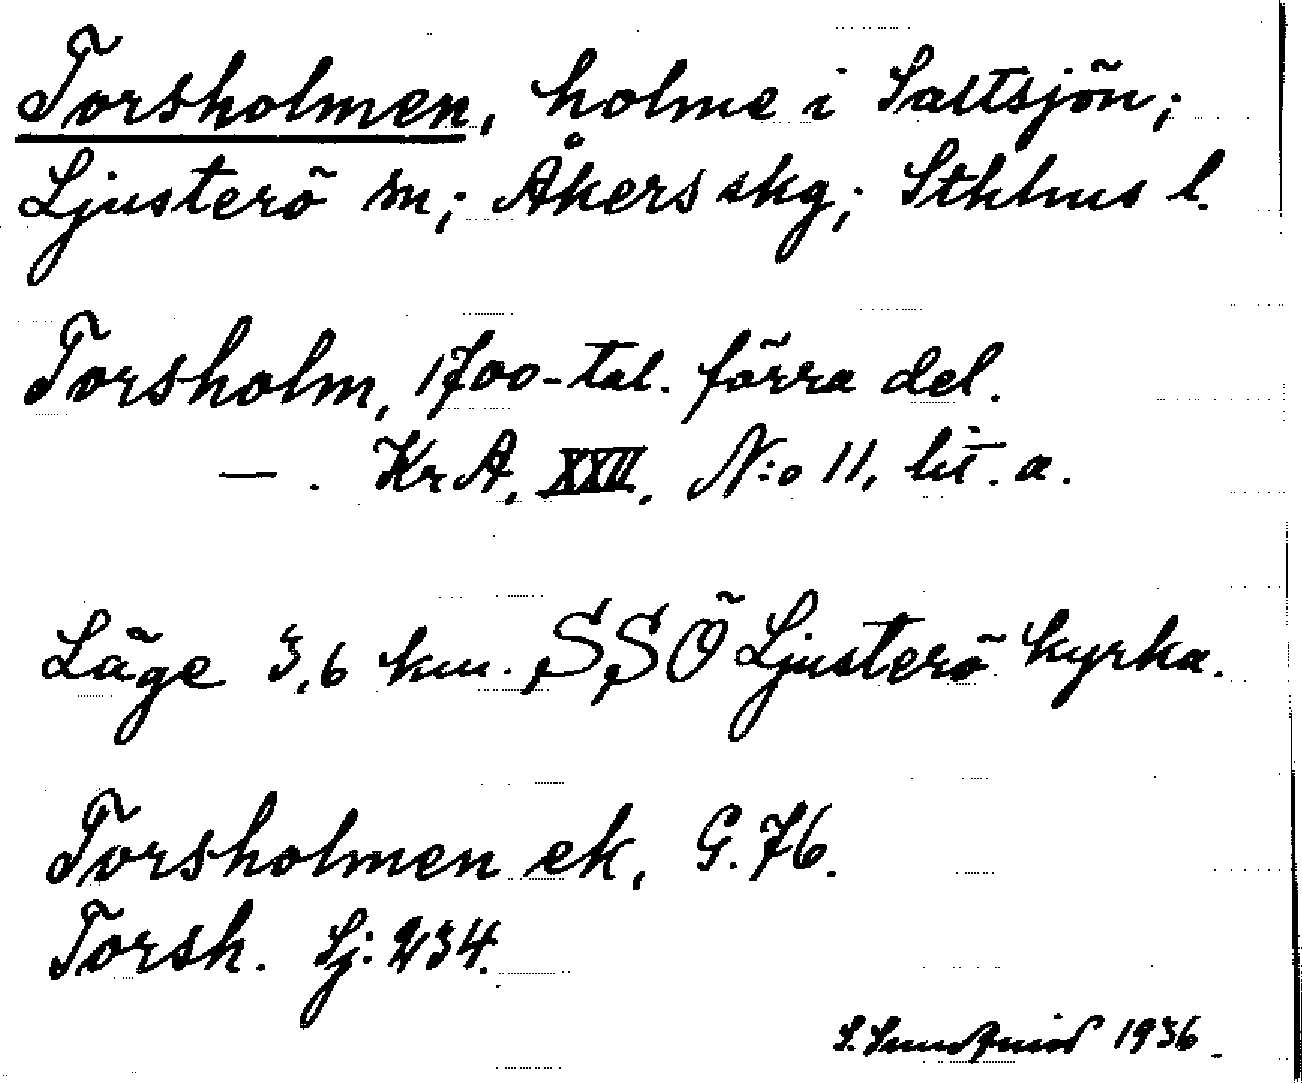 Torsholmen, holme i Saltsjön;
Ljusterö sn; Åkers skg; Sthlms l.
Torsholm, 1700-tal. förra del.
— . KrA, XXII, N:o 11, lit. a.
Läge 3,6 km. SSÖ Ljusterö kyrka.
Torsholmen ek, G. 76.
Torsh. Lj: 234.
S. 1936.